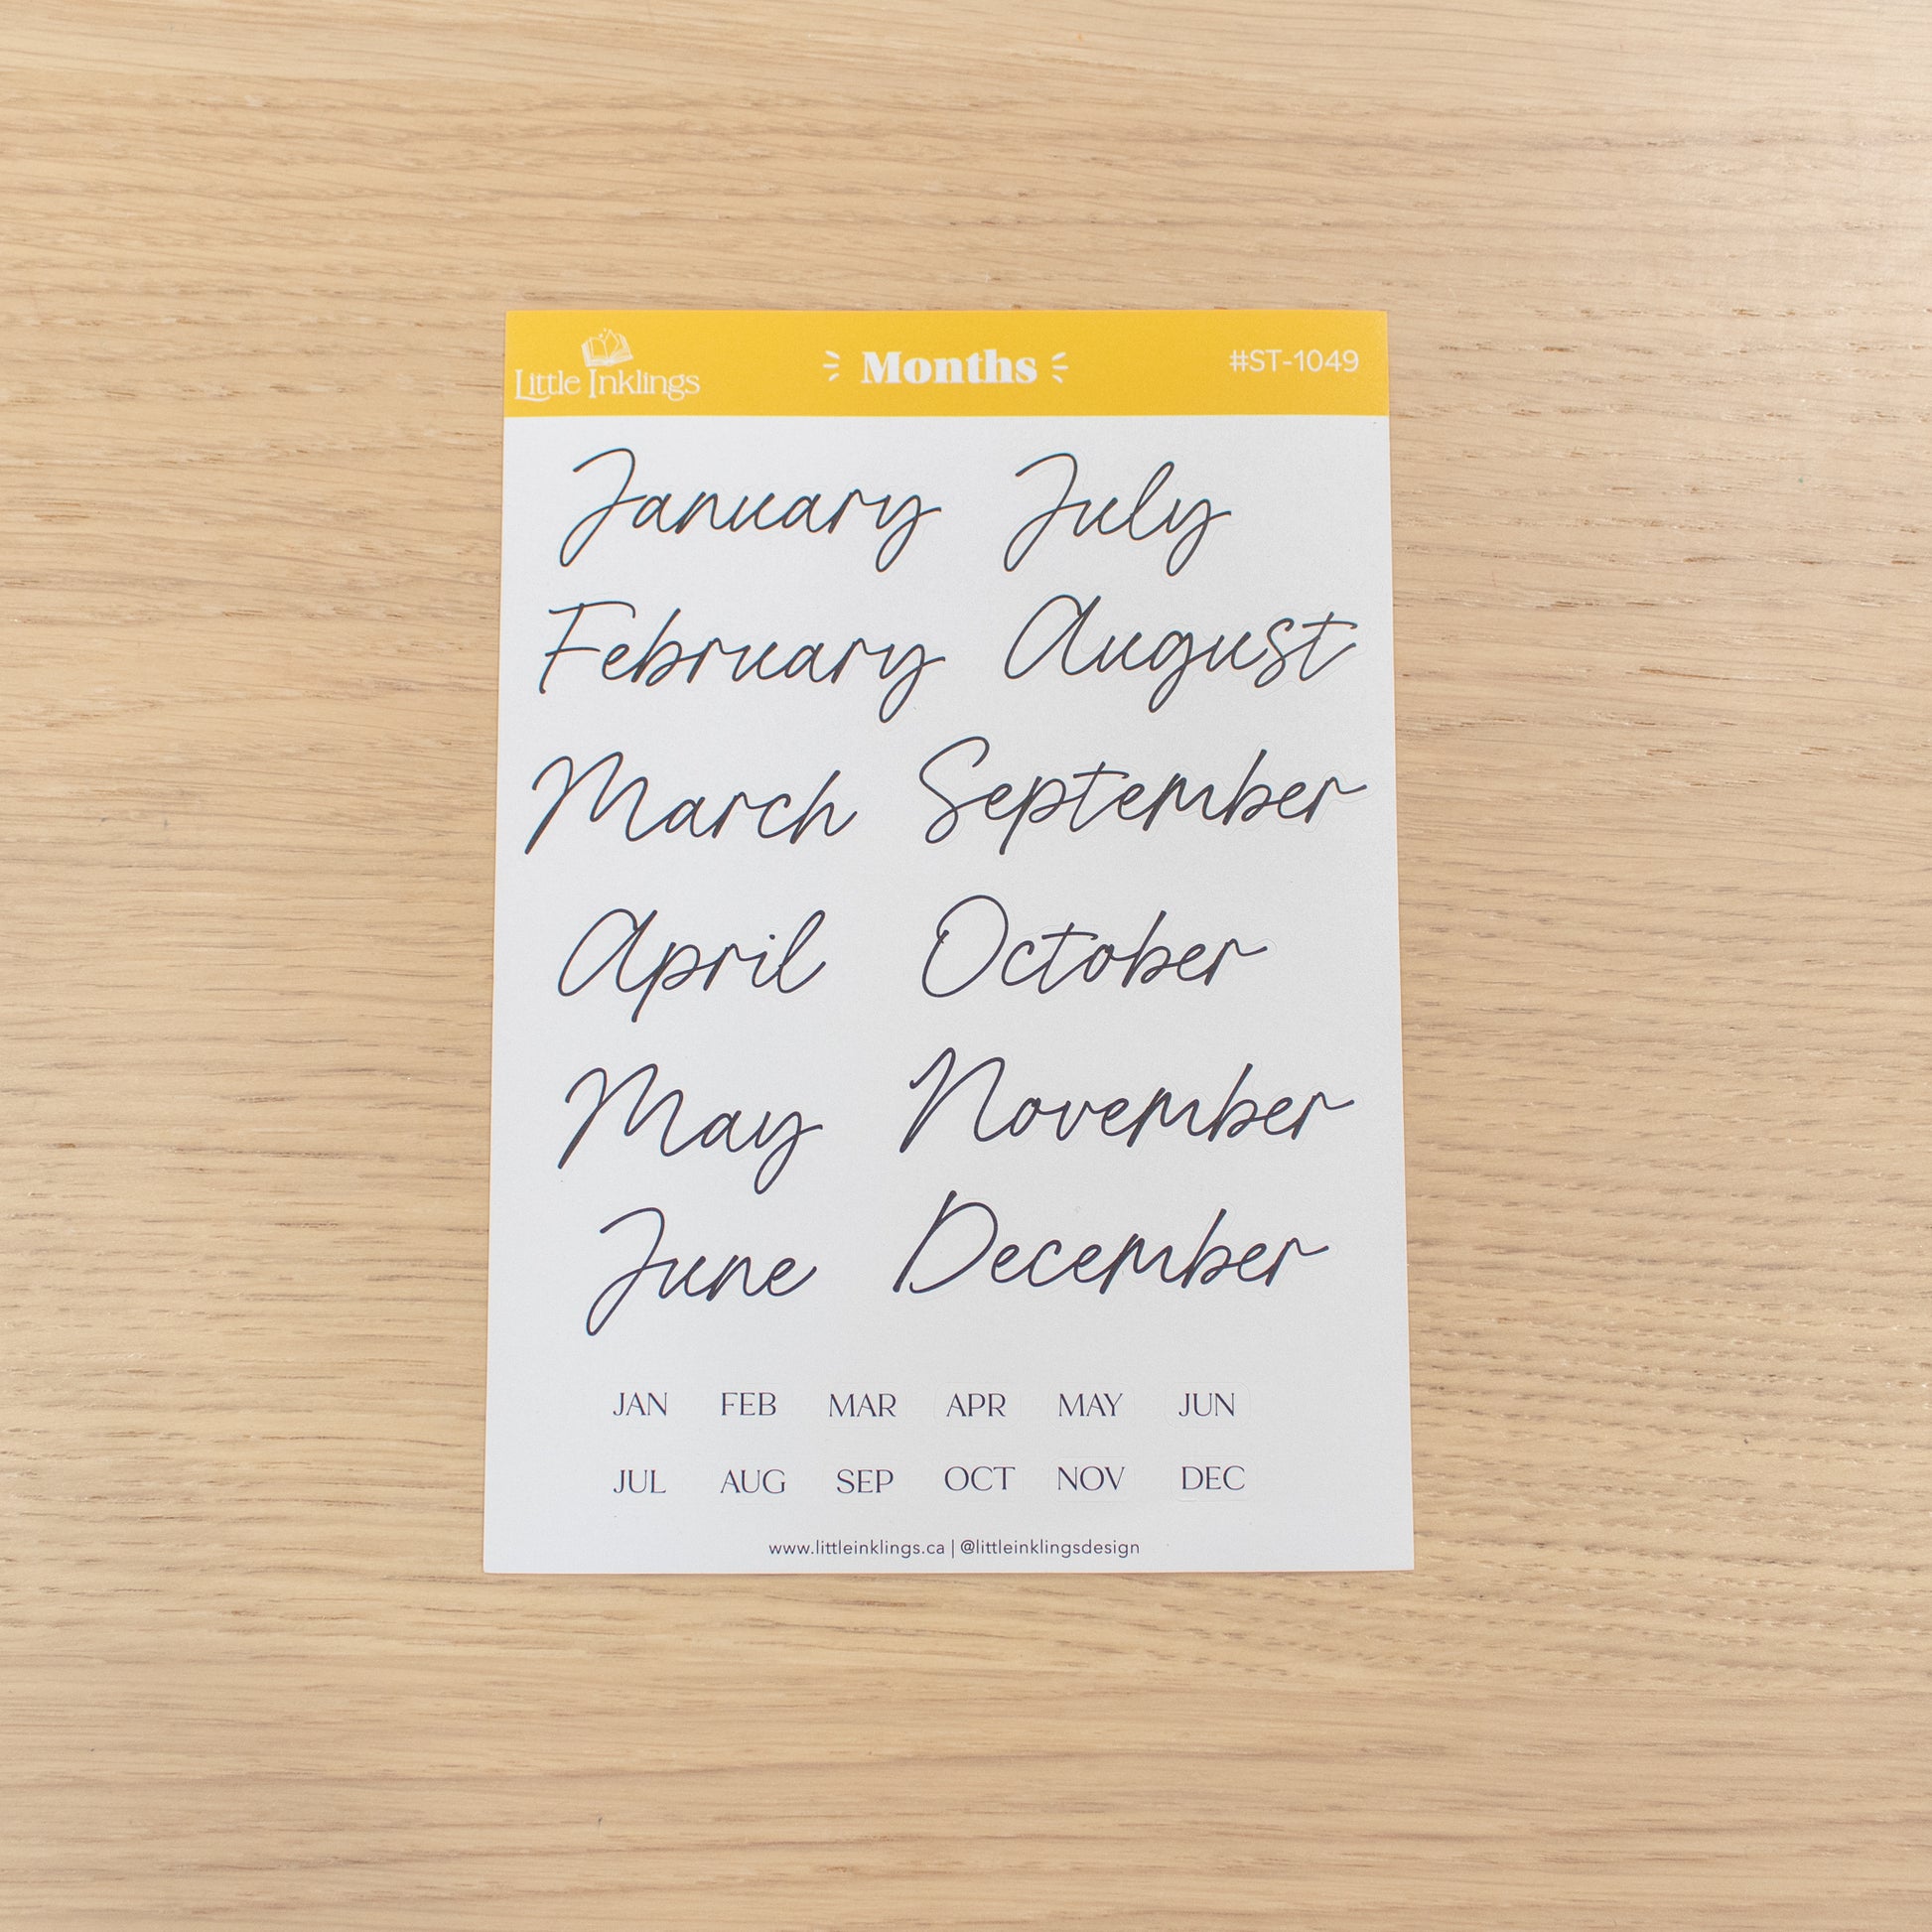 Little Inklings Months #ST-1049
January July
February August
March September
April October
May November
June December
JAN FEB MAR APR MAY JUN
JUL AUG SEP OCT NOV DEC
www.littleinklings.ca | @littleinklingsdesign